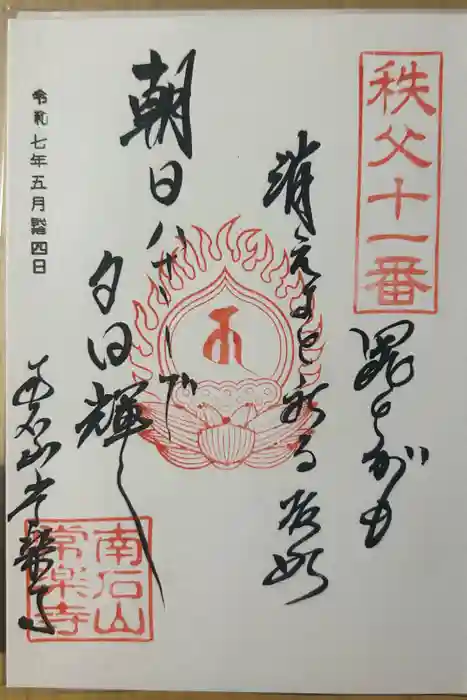 秩父十一番
罪とがも
消えよと祈る
朝日ハサヽデ
夕日輝く
南石山常楽寺
令和七年五月 四日
南石山
常楽寺